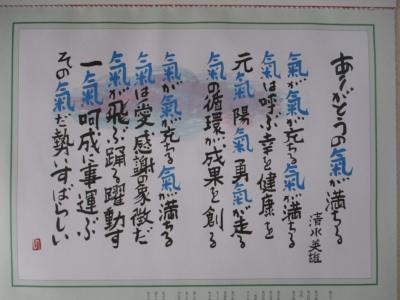 ありがとうの氣が満ちる
清水英雄
氣が氣が充ちる氣が満ちる
氣は呼ぶ幸を健康を
元氣陽氣勇氣が走る
氣の循環が成果を創る
氣が氣が充ちる氣が満ちる
氣は愛感謝の象徴だ
氣が飛ぶ踊る躍動す
一氣呵成に事運ぶ
その氣だ勢いすばらしい